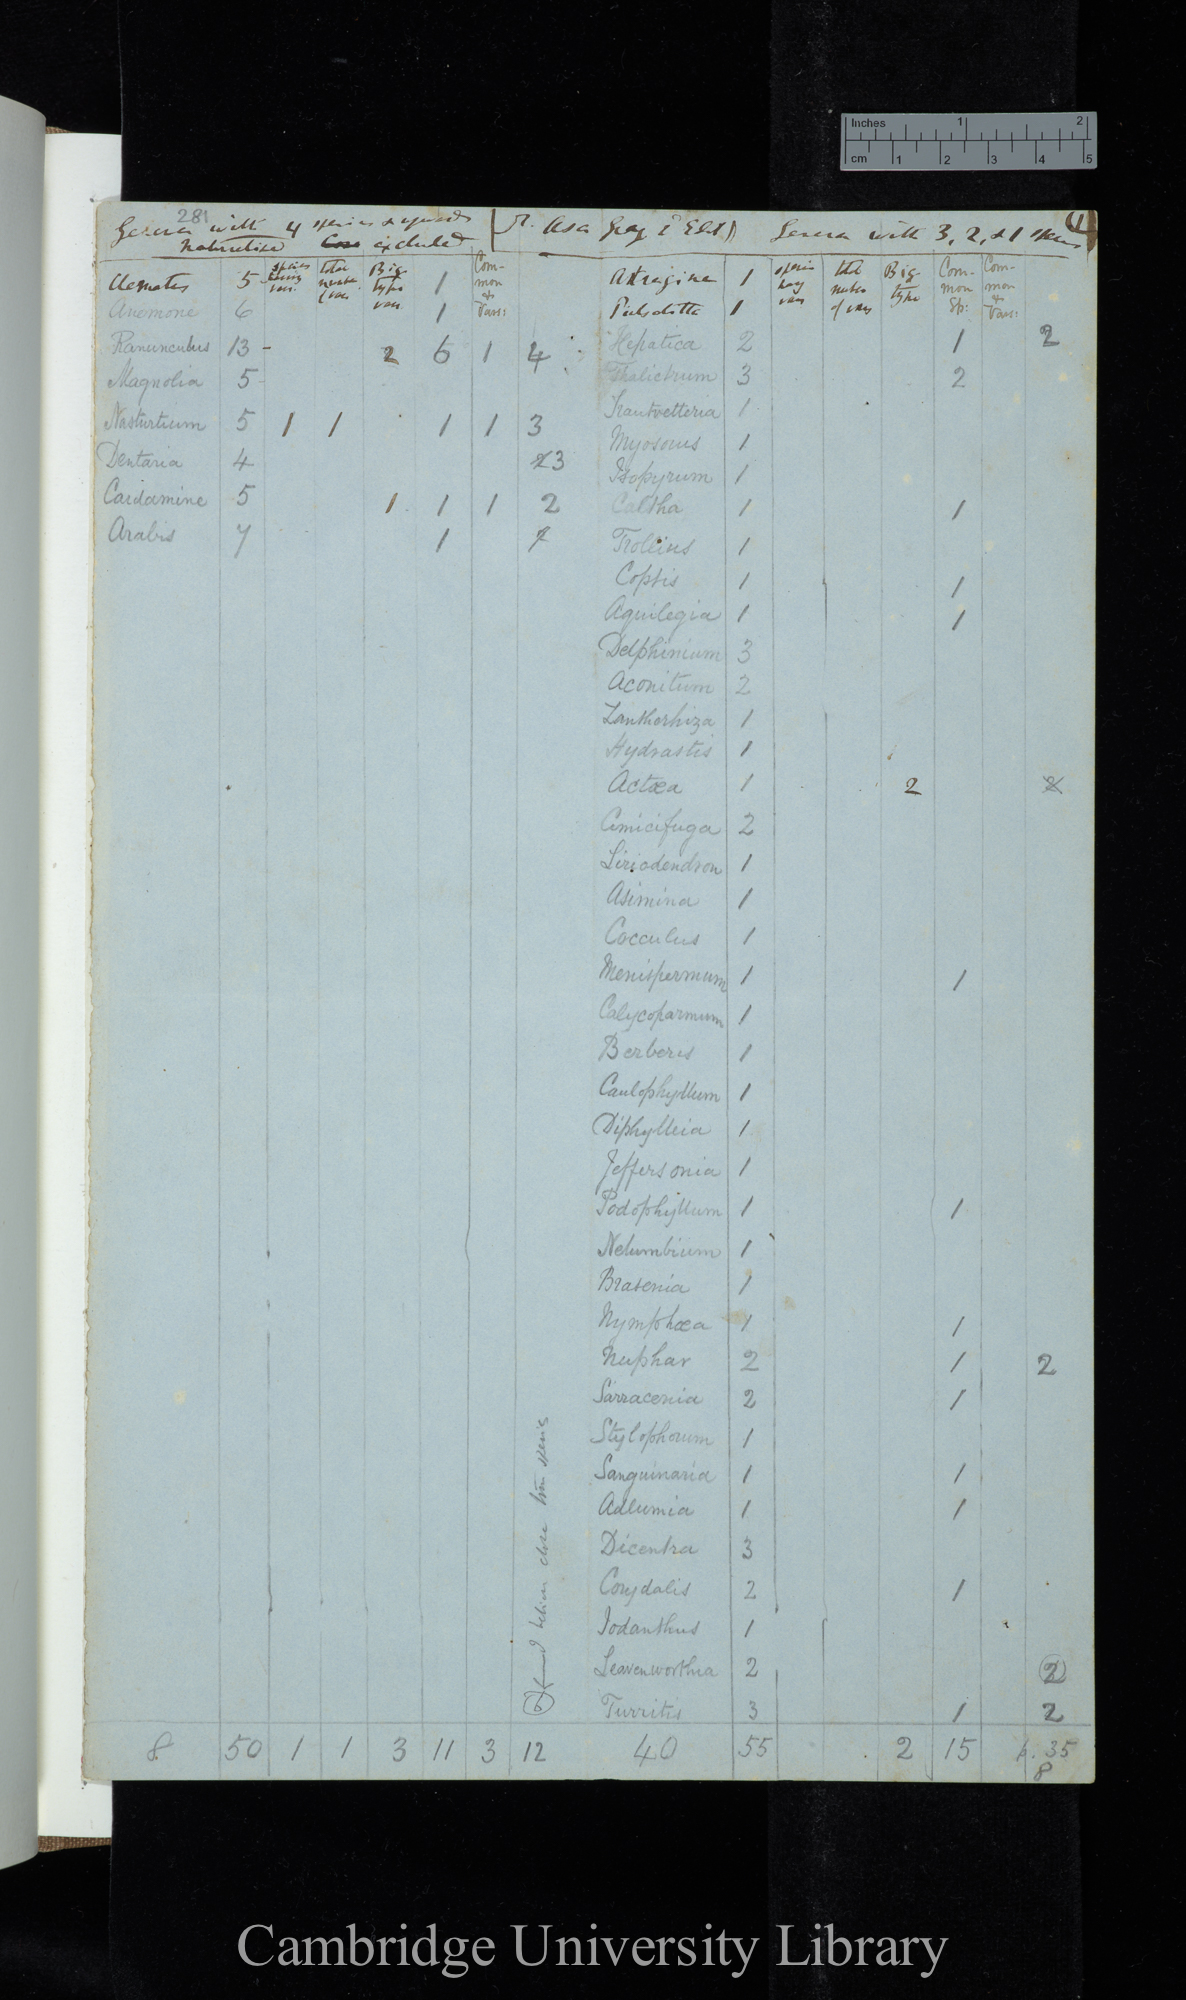 Inches 1 2
cm 1 2 3 4 5
281
Genera with 4 species & upwards
naturalised excluded
Asa Gray 2 Edit)
Genera with 3, 2, & 1 species
4
species having var. total number of vars Big type vars. Common & Vars:
species having vars total number of vars Big type Common Sp: Common & Vars:
Clematis 5 1
Anemone 6 1
Ranunculus 13 - 2 6 1 4
Magnolia 5 -
Nasturtium 5 1 1 1 1 3
Dentaria 4 3
Cardamine 5 1 1 1 2
Arabis 7 1
8 50 1 1 3 11 3 12
Atragine 1
Pulsatilla 1
Hepatica 2 1 2
Thalictrum 3 2
Trautvetteria 1
Myosurus 1
Isopyrum 1
Caltha 1 1
Trollius 1
Coptis 1 1
Aquilegia 1 1
Delphinium 3
Aconitum 2
Zanthorhiza 1
Hydrastis 1
Actæa 1 2 2
Cimicifuga 2
Liriodendron 1
Asimina 1
Cocculus 1
Menispermum 1 1
Calycoparmum 1
Berberis 1
Caulophyllum 1
Diphylleia 1
Jeffersonia 1
Podophyllum 1 1
Nelumbium 1
Brasenia 1
Nymphæa 1 1
Nuphar 2 1 2
Sarracenia 2 1
Stylophorum 1
Sanguinaria 1 1
Adlumia 1 1
Dicentra 3
Corydalis 2 1
Iodanthus 1
Leavenworthia 2 2
Turritis 3 1 2
40 55 2 15 p. 35
8
close species
Cambridge University Library